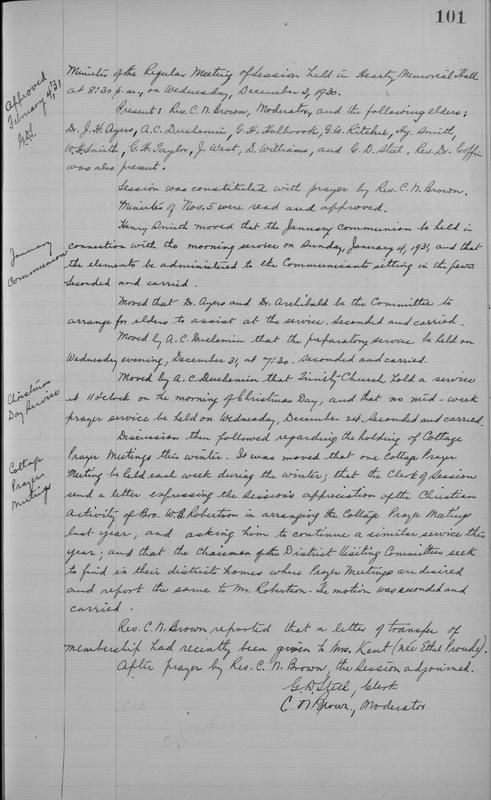 101
Minutes of the Regular Meeting of Session held in Heartz Memorial Hall
at 8:30 p.m., on Wednesday, December 3, 1930.
Approved
February 4, '31
G.D.S.
Present: Rev. C. N. Brown, Moderator, and the following elders:
Dr. J. H. Ayers, A.C. Duchemin, G. H. Holbrook, G.W. Ritchie, Hy. Smith,
W. H. Smith, G. H. Taylor, J. West, D. Williams, and G. D. Steel. Rev. Dr. Coffin
was also present.
Session was constituted with prayer by Rev. C. N. Brown.
Minutes of Nov. 5 were read and approved.
January
Communion
Henry Smith moved that the January Communion be held in
connection with the morning service on Sunday, January 4, 1931, and that
the elements be administered to the Communicants sitting in the pews
Seconded and carried.
Moved that Dr. Ayers and Dr. Archibald be the Committee to
arrange for elders to assist at the service. Seconded and carried.
Moved by A. C. Duchemin that the preparatory service be held on
Wednesday evening, December 31, at 7:30. Seconded and carried.
Christmas
Day Service
Moved by A. C. Duchemin that Trinity Church hold a service
at 11 o'clock on the morning of Christmas Day, and that no mid-week
prayer service be held on Wednesday, December 24. Seconded and carried.
Cottage
Prayer
Meetings
Discussion then followed regarding the holding of Cottage
Prayer Meetings this winter. It was moved that one Cottage Prayer
Meeting be held each week during the winter; that the Clerk of Session
send a letter expressing the Session's appreciation of the Christian
activity of Bro. W. B. Robertson in arranging the Cottage Prayer Meetings
last year, and asking him to continue a similar service this
year; and that the Chairmen of the District Visiting Committees seek
to find in their districts homes where Prayer Meetings are desired
and report the same to Mr. Robertson. The motion was seconded and
carried.
Rev. C. N. Brown reported that a letter of transfer of
membership had recently been given to Mrs. Kent (née Ethel Proude).
After prayer by Rev. C. N. Brown, the Session adjourned.
G. D. Steel, Clerk
C. N. Brown, Moderator